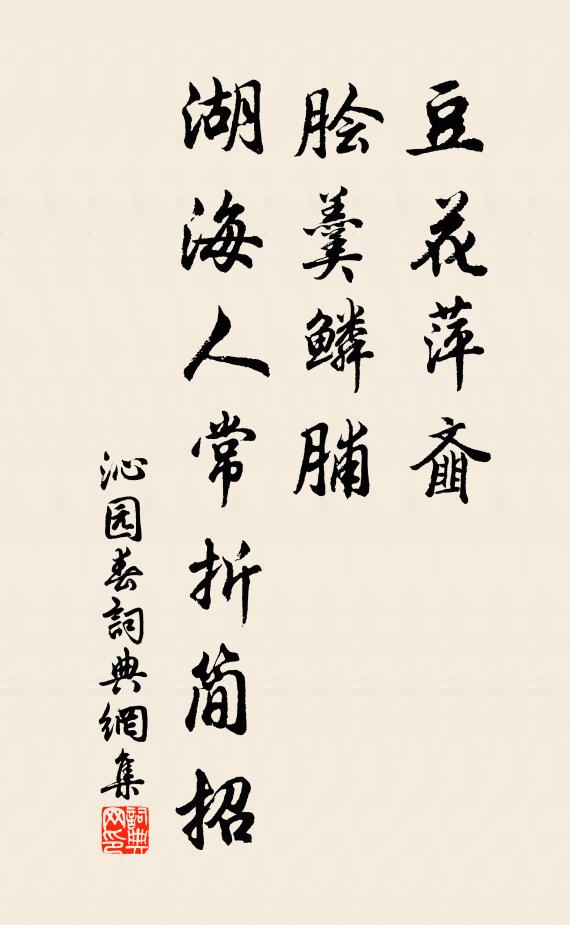 豆花萍齑
脍羹鳞脯
湖海人常折简招
沁园春詞典網集
詞典网印